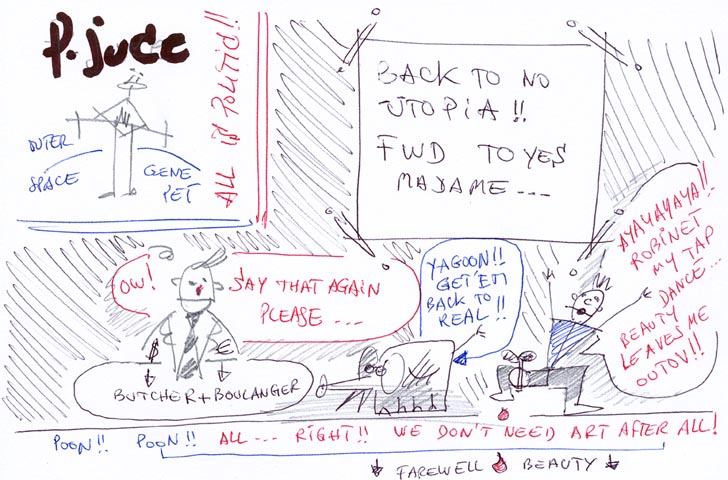 P. Jude
ALL is Politid!!
OUTER
SPACE
GENE
PET
BACK TO NO
UTOPIA!!
FWD TO YES
MADAME---
OW!
SAY THAT AGAIN
PLEASE ---
$ €
BUTCHER + BOULANGER
YAGOON!!
GET'EM
BACK TO
REAL!!
AYAYAYAYA!!
ROBINET
MY TAP
DANCE...
BEAUTY
LEAVES ME
OUTOV!!
POON!! POON!! ALL --- RIGHT!! WE DON'T NEED ART AFTER ALL!
FAREWELL BEAUTY